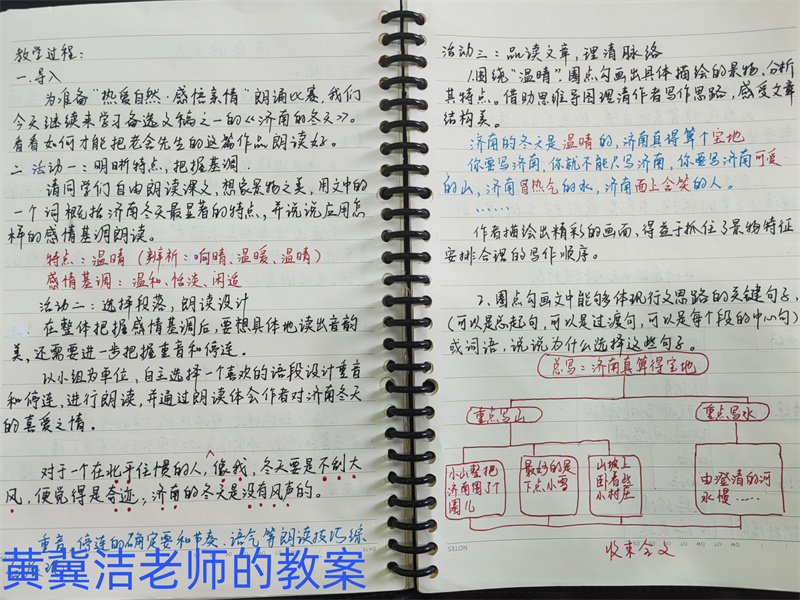 教学过程：
一.导入
为准备“热爱自然·感悟亲情”朗诵比赛,我们
今天继续来学习备选文稿之一的《济南的冬天》。
看看如何才能把老舍先生的这篇作品朗读好。
二 活动一：明晰特点,把握基调.
请同学们自由朗读课文,想象景物之美,用文中的
一个词概括济南冬天最显著的特点,并说说应用怎
样的感情基调朗读。
特点：温晴（辨析：响晴、温暖、温晴）
感情基调：温和、恬淡、闲适
活动二：选择段落,朗读设计
在整体把握感情基调后,要想具体地读出音韵
美,还需要进一步把握重音和停连.
以小组为单位,自主选择一个喜欢的语段设计重音
和停连,进行朗读,并通过朗读体会作者对济南冬天
的真爱之情.
对于一个在北平住惯的人,像我,冬天要是不刮大
风,便觉得是奇迹;济南的冬天是没有风声的.
重音、停连的确定要和节奏、语气等朗读技巧综
黄冀洁老师的教案
活动三：品读文章,理清脉络
1.围绕“温晴”.圈点勾画出具体描绘的景物,分析
其特点。借助思维导图理清作者写作思路,感受文章
结构美.
济南的冬天是温晴的,济南真得算个宝地
你要写济南,你就不能只写济南,你要写济南可爱
的山,济南冒热气的水,济南面上含笑的人。
……
作者描绘出精彩的画面,得益于抓住了景物特征
安排合理的写作顺序。
2.圈点勾画文中能够体现行文思路的关键句子,
(可以是总起句,可以是过渡句,可以是每个段的中心句)
或词语,说说为什么选择这些句子.
总写：济南真算得宝地
重点写山
重点写水
小山整把
济南围了个
圈儿
最妙的是
下点小雪
山坡上
卧着些
小村庄
由澄清的河
水慢……
收束全文
NOTES